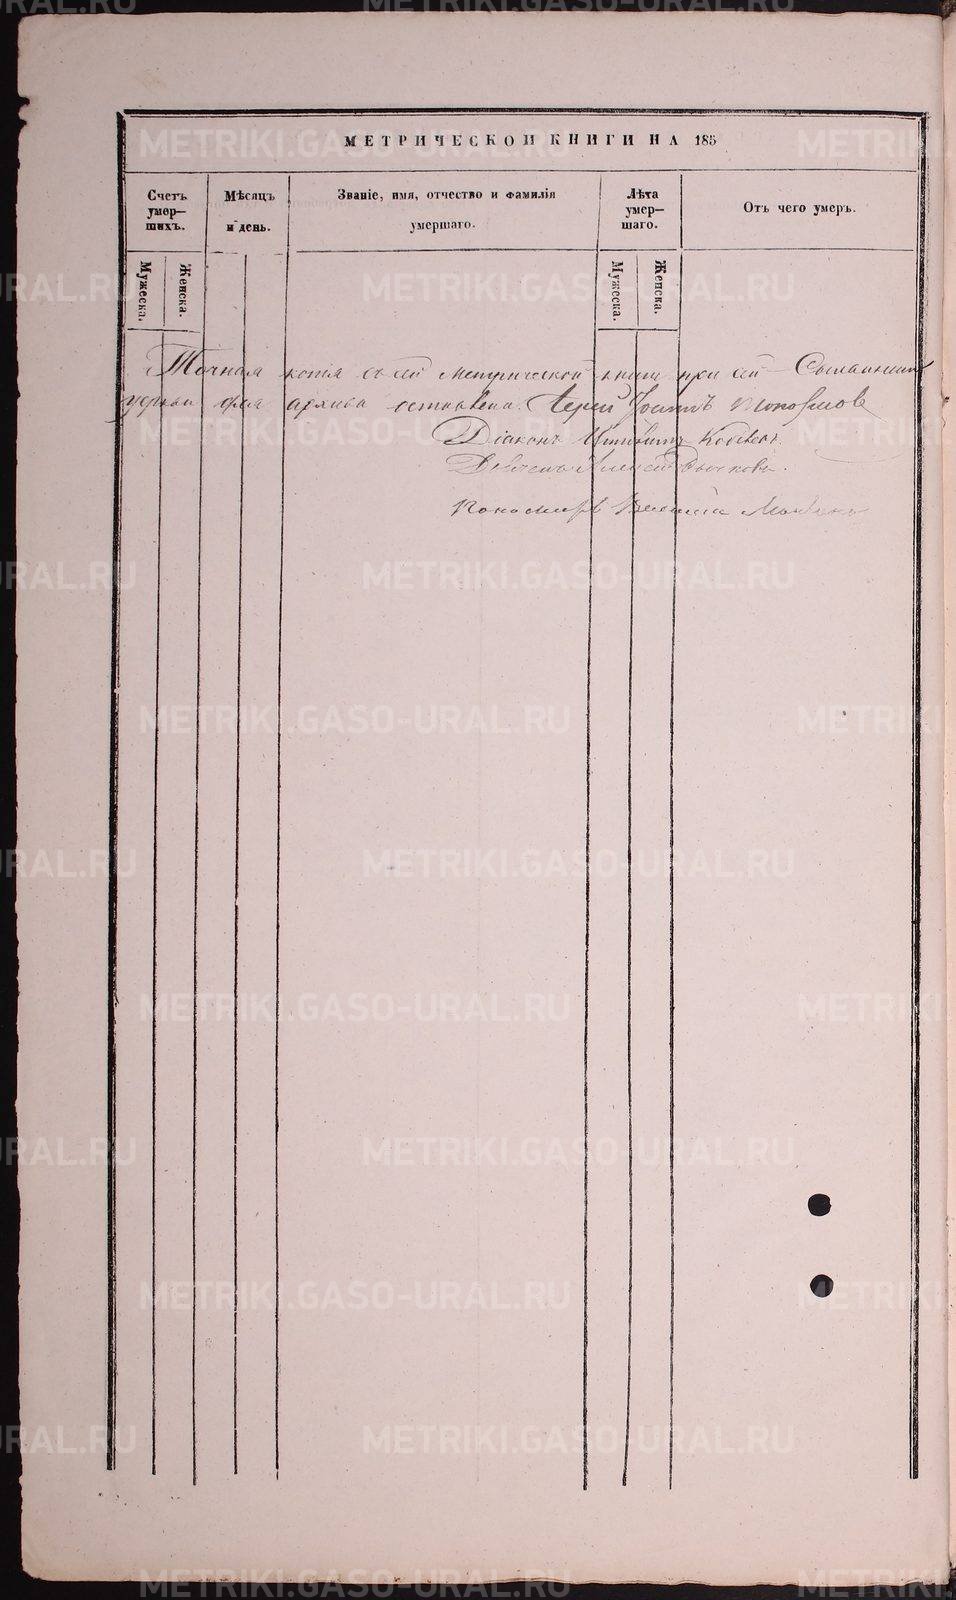 МЕТРИЧЕСКОЙ КНИГИ НА 185
Счетъ умер—шихъ.
Мѣсяцъ и день.
Званіе, имя, отчество и фамилія умершаго.
Лѣта умер—шаго.
Отъ чего умеръ.
Мужеска.
Женска.
Мужеска.
Женска.
Точная копія съ сей метрической книги при сей
церкви для архива оставлена. Іерей
Діаконъ
Пономарь
METRIKI.GASO-URAL.RU